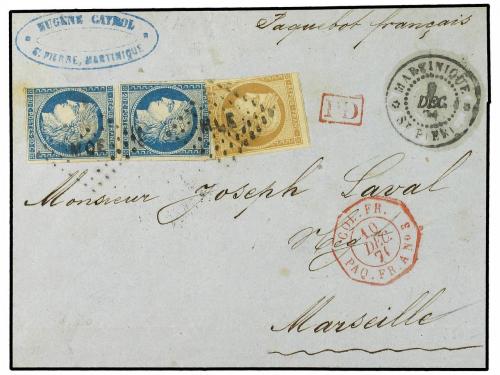 EUGÈNE CAYROL
St PIERRE, MARTINIQUE
Paquebot français
MARTINIQUE
DEC.
St PIERRE
PD
MQE
MQE
Monsieur Joseph Laval
Négt
COL. FR.
10
DEC.
71
PAQ. FR. A No 3
Marseille